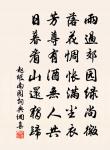 雨過郊園綠尚微
落花惆悵滿塵衣
芳尊有酒無人共
日暮看山還獨歸
趙嘏南園